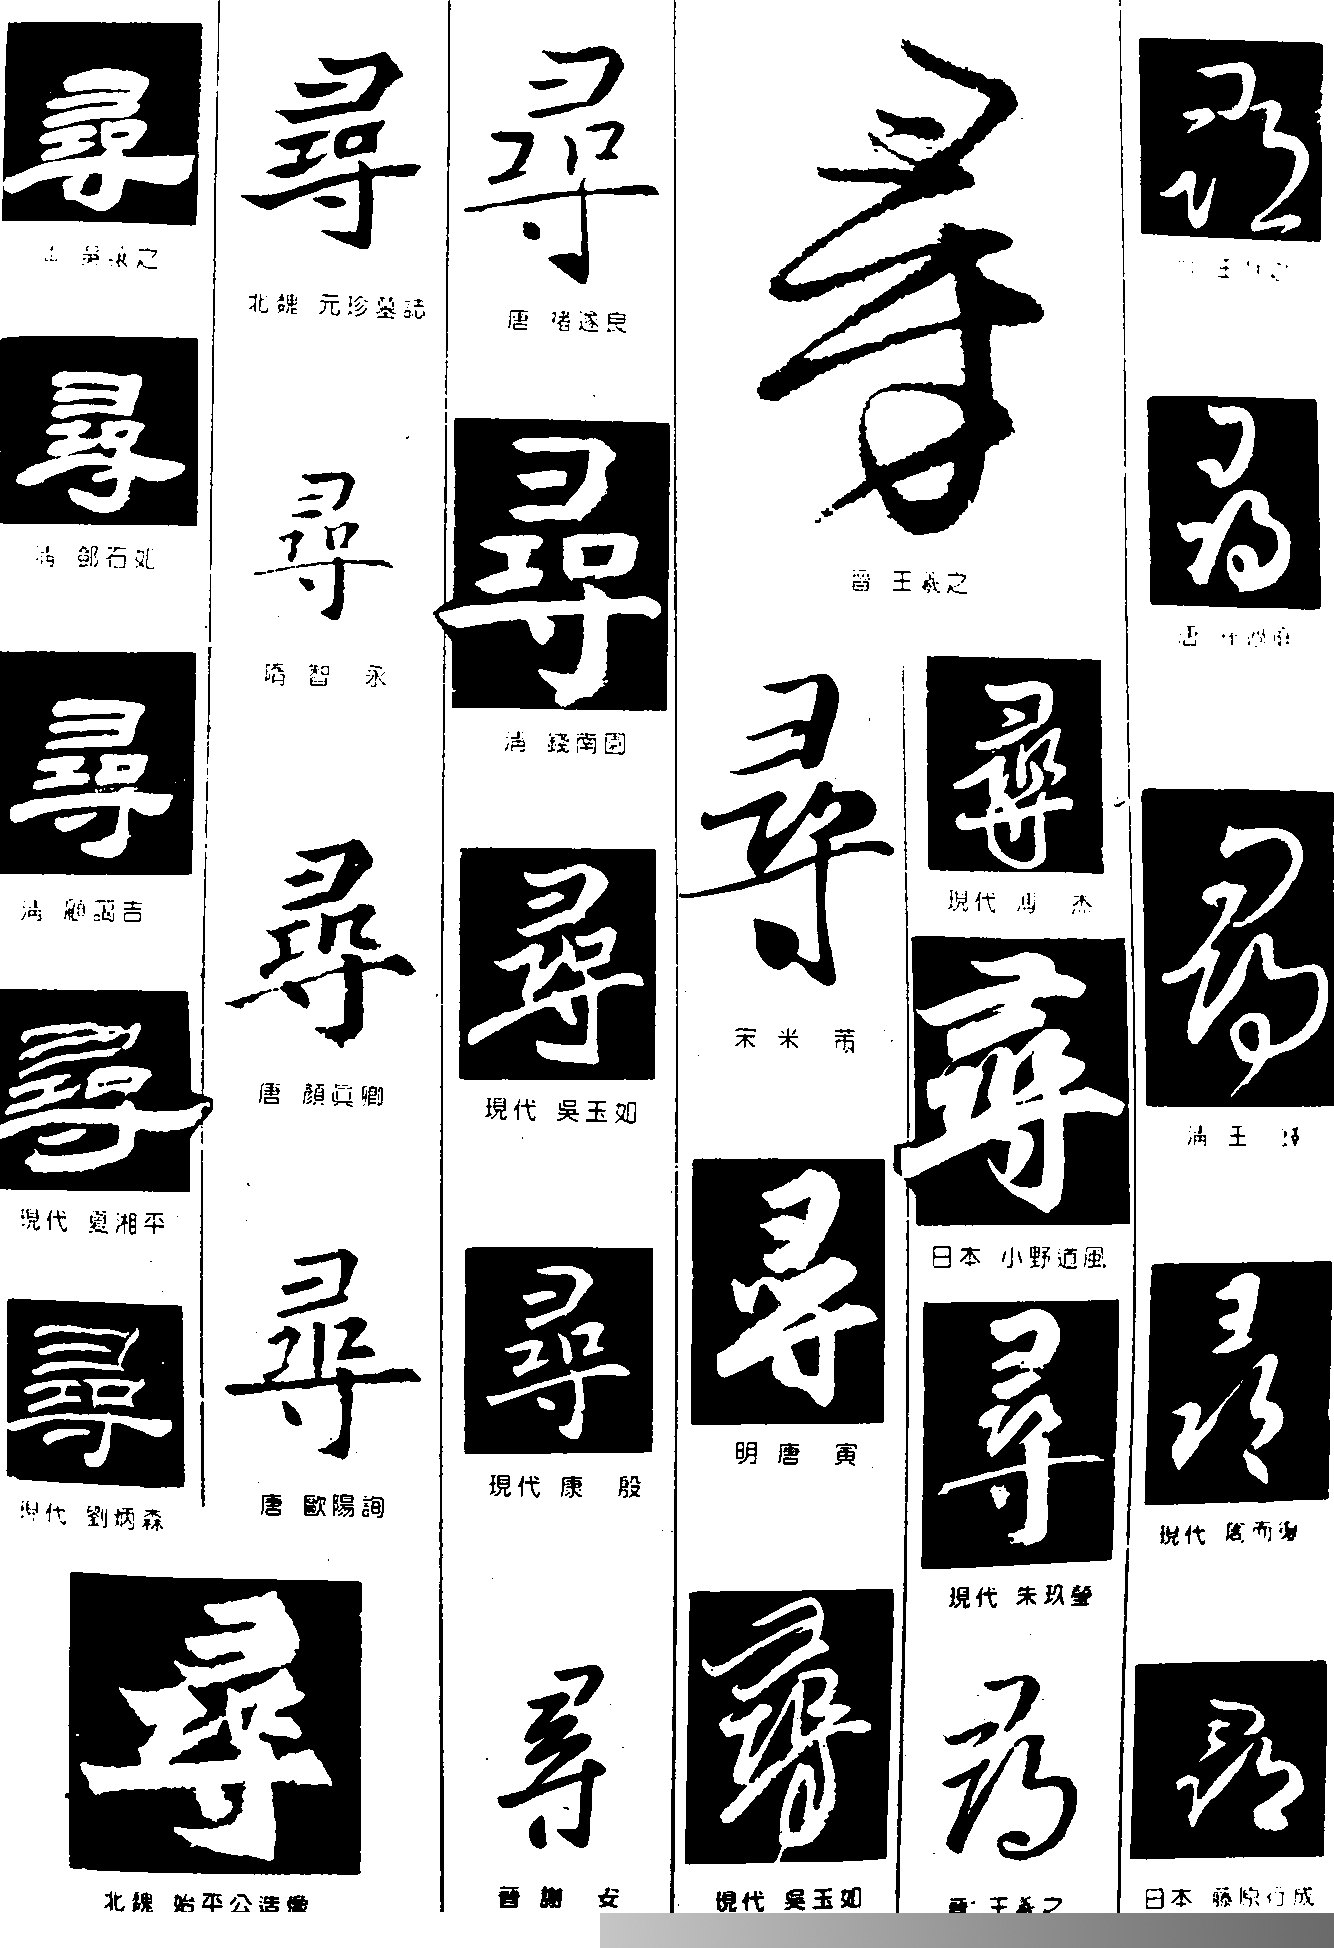 尋
尋
清 鄧石如
尋
清 顧藹吉
尋
現代 夏湘平
尋
現代 劉炳森
尋
北魏 始平公造像
尋
北魏 元珍墓誌
尋
隋 智永
尋
唐 顏眞卿
尋
唐 歐陽詢
尋
唐 褚遂良
尋
清 錢南園
尋
現代 吳玉如
尋
現代 康殷
尋
晉 謝安
尋
晉 王羲之
尋
宋 米芾
尋
明 唐寅
尋
現代 吳玉如
尋
現代
尋
日本 小野道風
尋
現代 朱玖瑩
尋
晉 王羲之
尋
尋
唐
尋
清 王
尋
現代 周而復
尋
日本 藤原行成